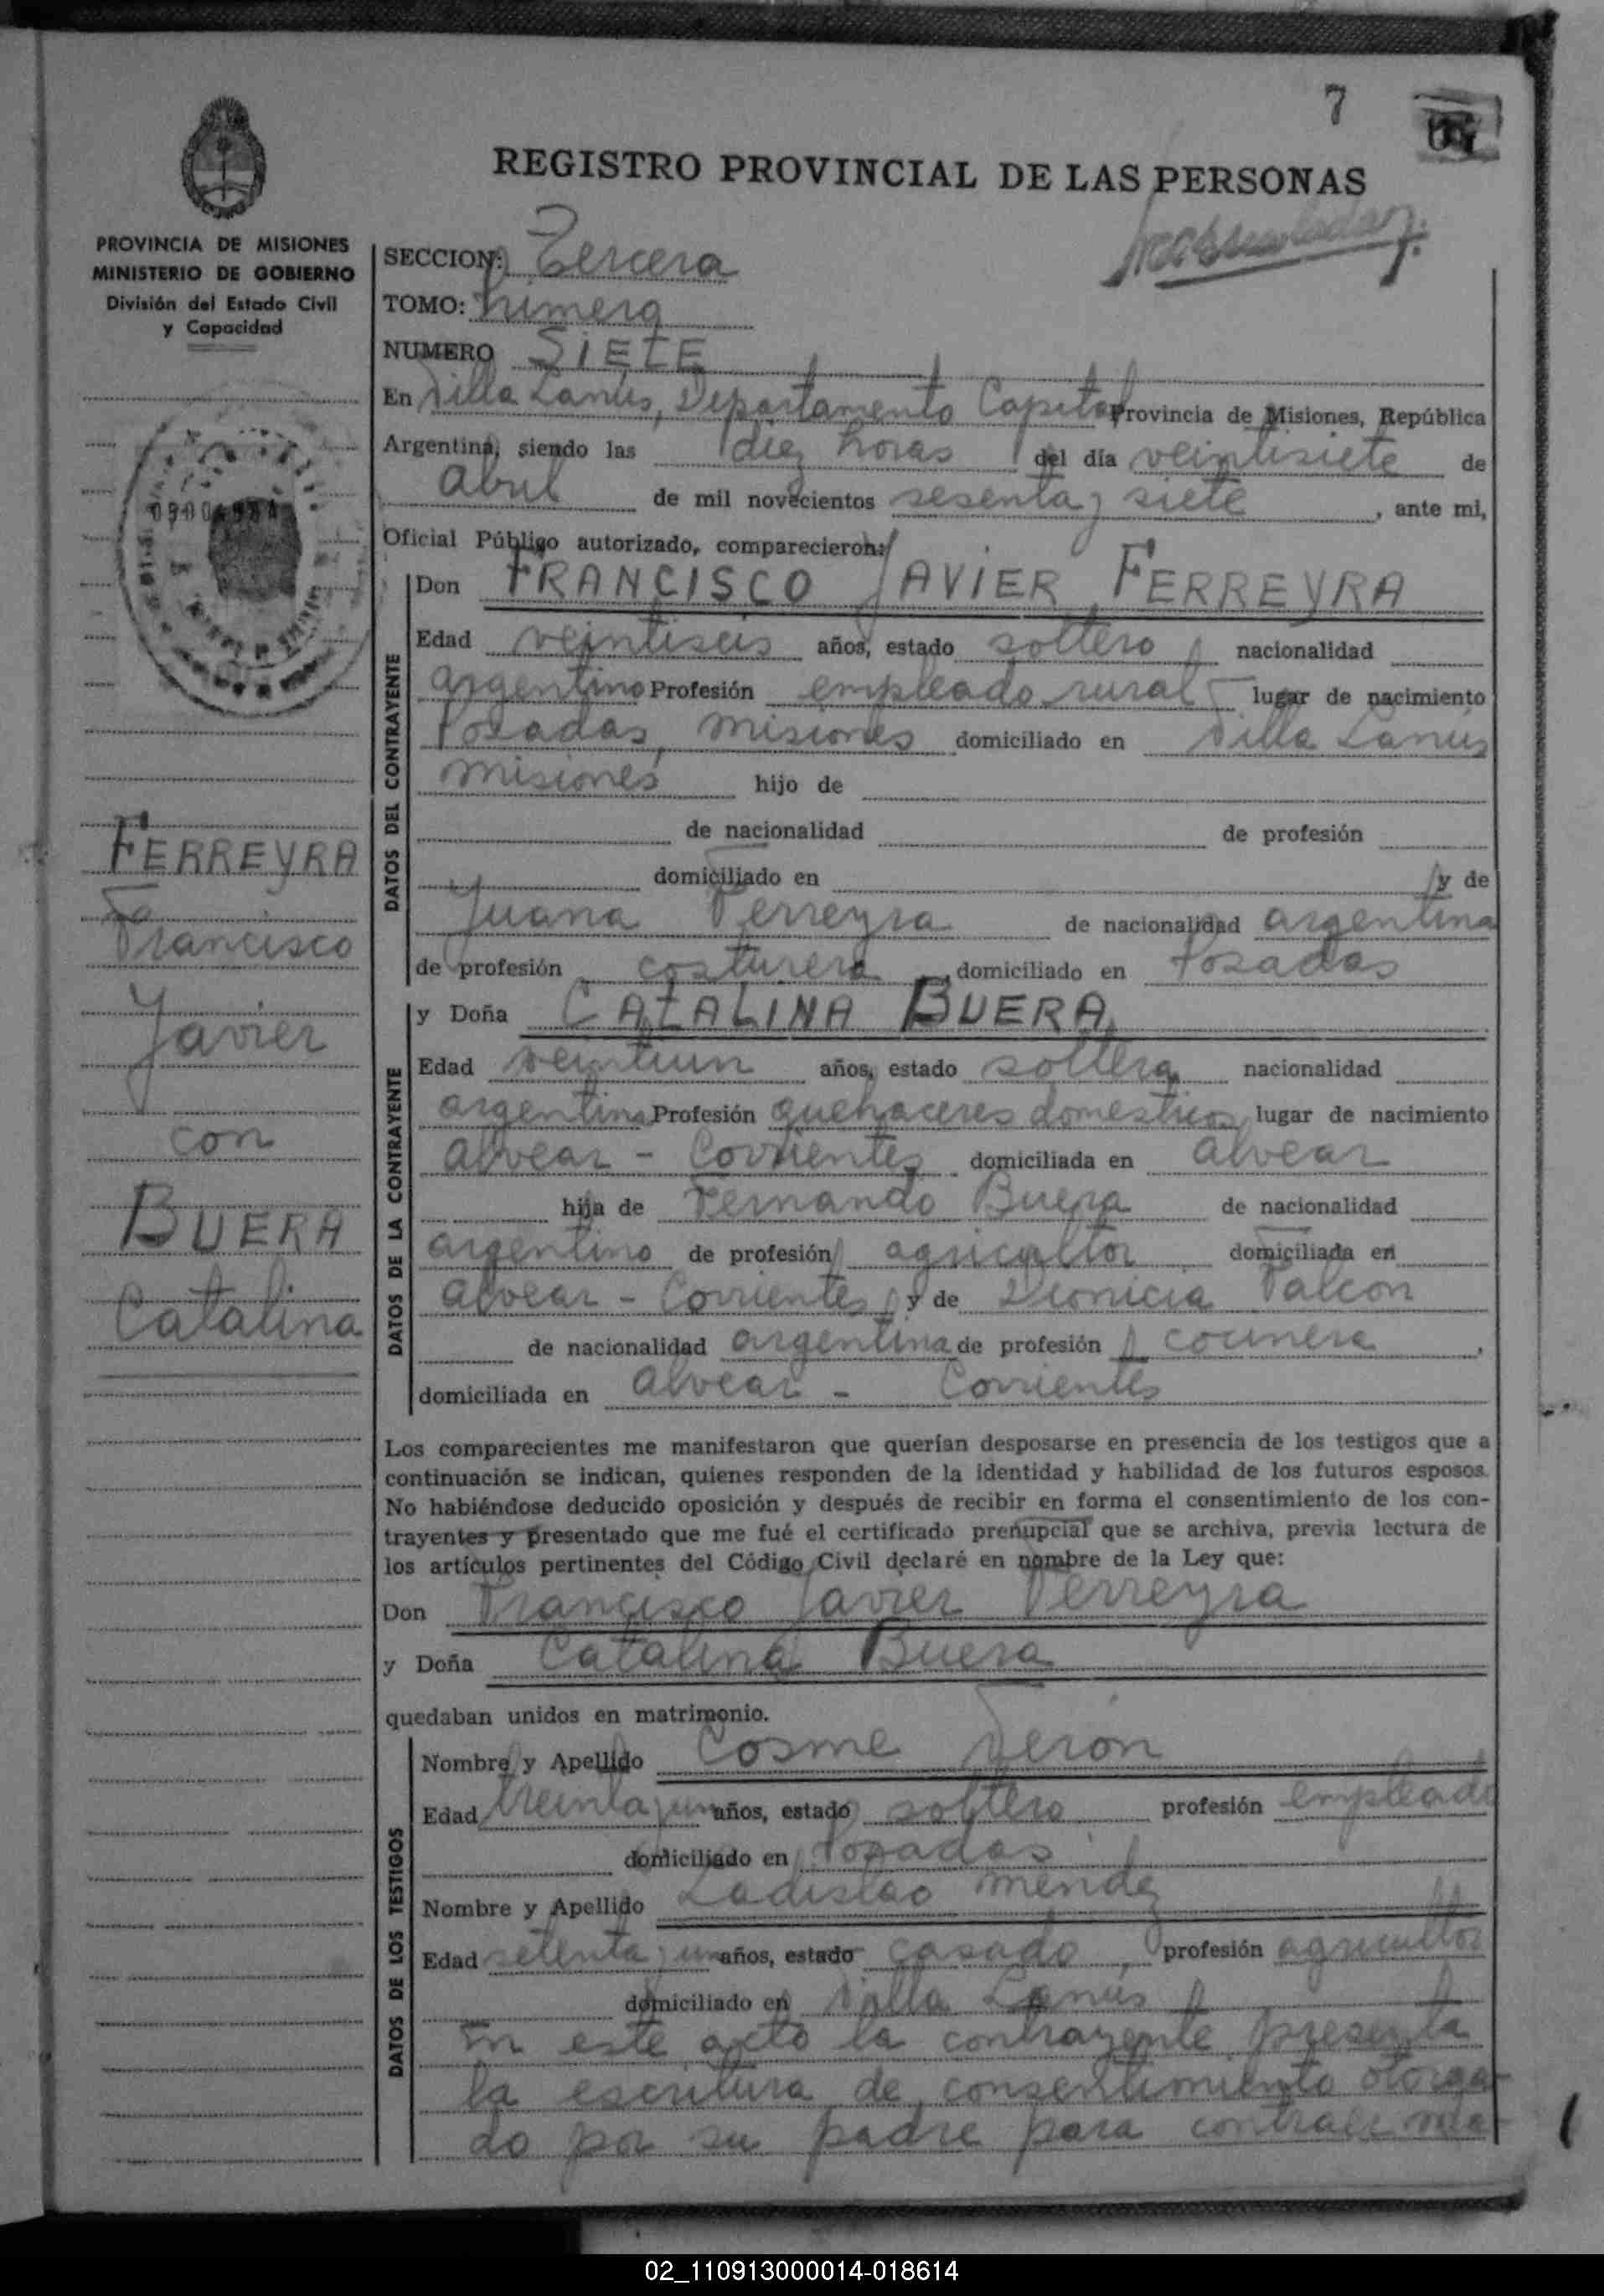 7
REGISTRO PROVINCIAL DE LAS PERSONAS
PROVINCIA DE MISIONES
MINISTERIO DE GOBIERNO
División del Estado Civil
y Capacidad
SECCION: Tercera
TOMO: Primera
NUMERO SIETE
En Villa Lanús, Departamento Capital Provincia de Misiones, República
Argentina, siendo las diez horas del día veintisiete de
Abril de mil novecientos sesenta y siete, ante mi,
Oficial Público autorizado, comparecieron:
Don FRANCISCO JAVIER FERREYRA
Edad veintiseis años, estado soltero nacionalidad
argentino Profesión empleado rural lugar de nacimiento
Posadas, Misiones domiciliado en Villa Lanús
Misiones hijo de
de nacionalidad de profesión
domiciliado en y de
Juana Ferreyra de nacionalidad argentina
de profesión costurera, domiciliado en Posadas
DATOS DEL CONTRAYENTE
y Doña CATALINA BUERA
Edad veintiun años, estado soltera nacionalidad
argentina Profesión quehaceres domesticos lugar de nacimiento
Alvear - Corrientes domiciliada en Alvear
hija de Fernando Buera de nacionalidad
argentino de profesión agricultor domiciliada en
Alvear - Corrientes, y de Dionicia Falcon
de nacionalidad argentina de profesión cocinera,
domiciliada en Alvear - Corrientes
DATOS DE LA CONTRAYENTE
FERREYRA
Francisco
Javier
con
BUERA
Catalina
Los comparecientes me manifestaron que querían desposarse en presencia de los testigos que a
continuación se indican, quienes responden de la identidad y habilidad de los futuros esposos.
No habiéndose deducido oposición y después de recibir en forma el consentimiento de los con-
trayentes y presentado que me fué el certificado prenupcial que se archiva, previa lectura de
los artículos pertinentes del Código Civil declaré en nombre de la Ley que:
Don Francisco Javier Ferreyra
y Doña Catalina Buera
quedaban unidos en matrimonio.
Nombre y Apellido Cosme Veron
Edad treinta y un años, estado soltero profesión empleado
domiciliado en Posadas
Nombre y Apellido Ladislao Mendez
Edad setenta y un años, estado casado, profesión agricultor
domiciliado en Villa Lanús
DATOS DE LOS TESTIGOS
En este acto la contrayente presenta
la escritura de consentimiento otorga-
do por su padre para contraer ma-
02_110913000014-018614